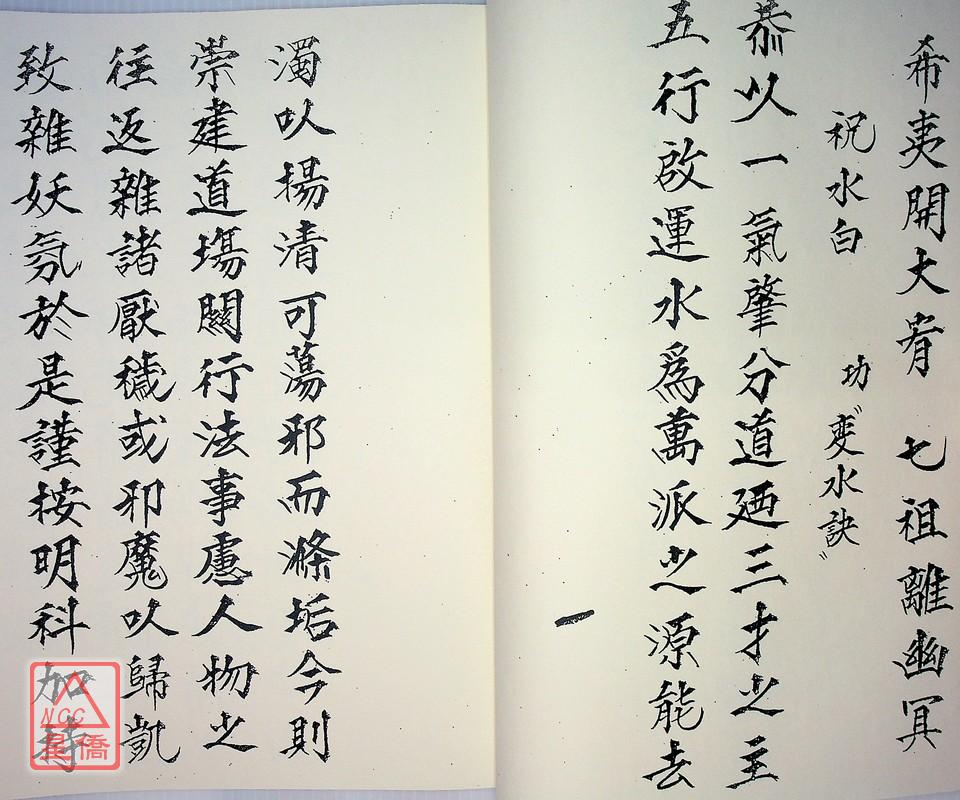 希夷開大宥 七祖離幽冥
祝水白 功 変水訣
恭以一氣肇分道廼三才之主
五行啟運水為萬派之源能去
濁以揚清可蕩邪而滌垢今則
崇建道塲關行法事慮人物之
往返雜諸厭穢或邪魔以歸
致雜妖氛於是謹按明科加持
NCC
星僑